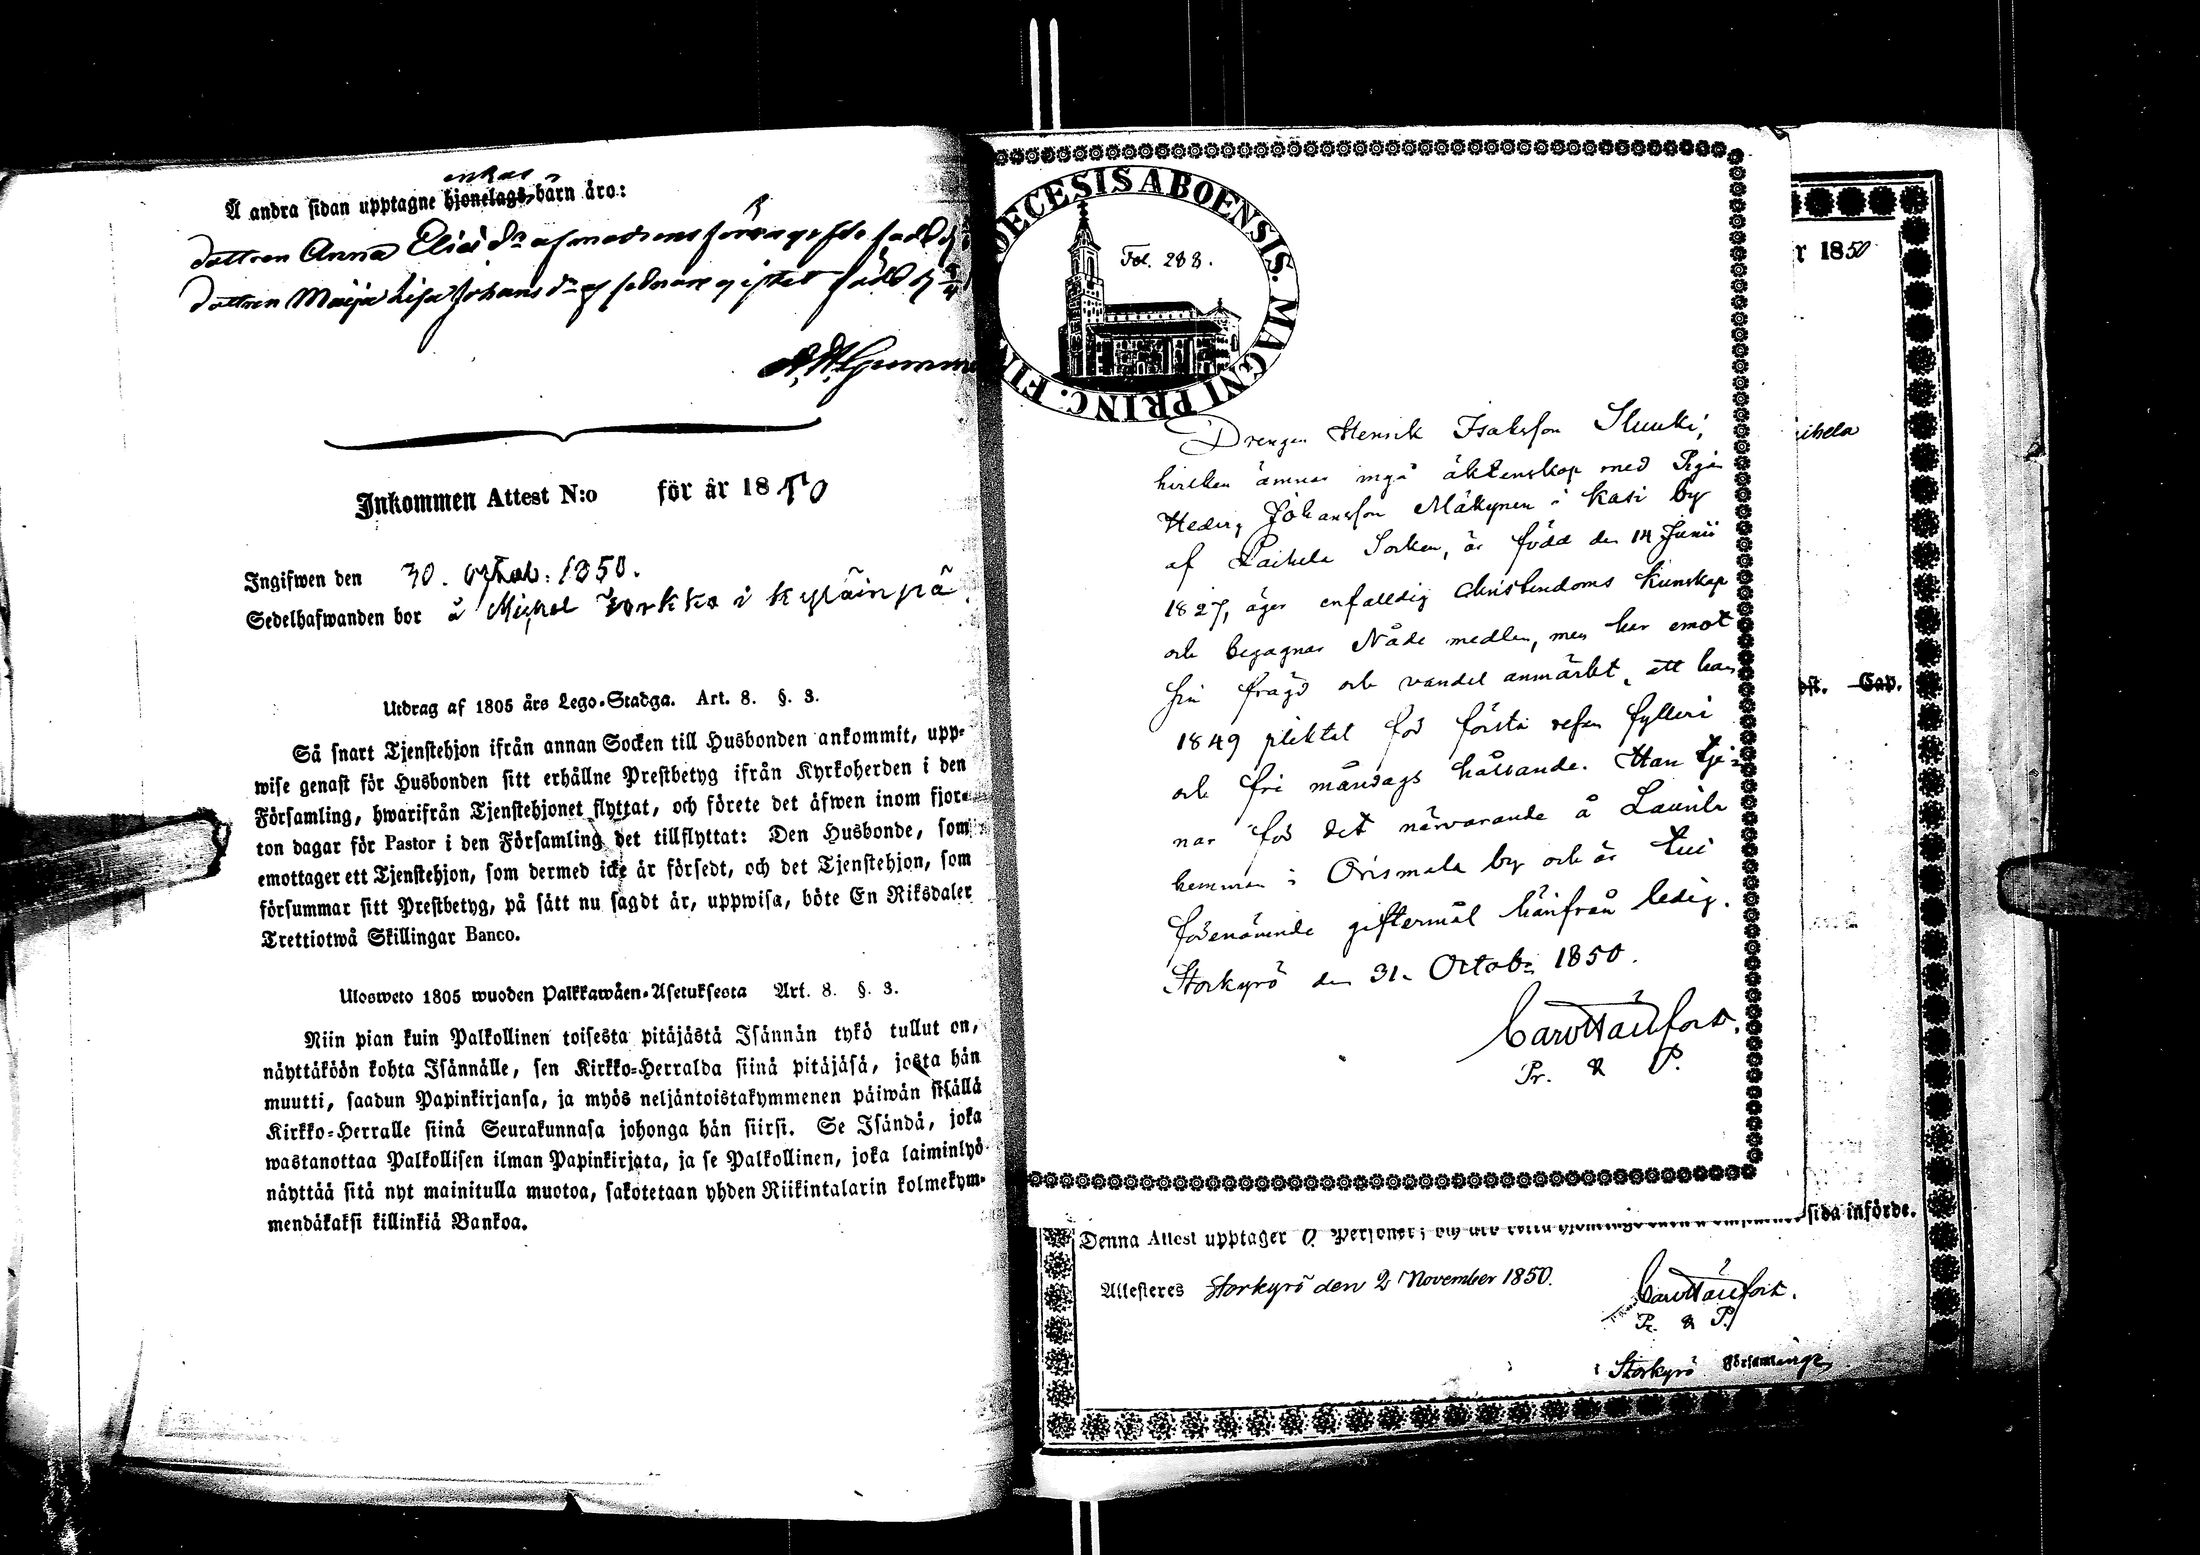 enkas
Å andra sidan upptagne hjonelags barn äro:
dottren Anna Elias dr af
dottren Maija Lisa Johans dr
Inkommen Attest N:o för år 1850
Ingifwen den 30. 1850.
Sedelhafwanden bor å Michel i
Utdrag af 1805 års Lego-Stadga. Art. 8. §. 3.
Så snart Tjenstehjon ifrån annan Socken till Husbonden ankommit, upp-
wise genast för Husbonden sitt erhållne Prestbetyg ifrån Kyrkoherden i den
Församling, hwarifrån Tjenstehjonet flyttat, och förete det äfwen inom fjor-
ton dagar för Pastor i den Församling det tillflyttat: Den Husbonde, som
emottager ett Tjenstehjon, som dermed icke är försedt, och det Tjenstehjon, som
försummar sitt Prestbetyg, på sätt nu sagdt är, uppwisa, böte En Riksdaler
Trettiotwå Skillingar Banco.
Ulosweto 1805 wuoden Palkkawäen-Asetuksesta Art. 8. §. 3.
Niin pian kuin Palkollinen toisesta pitäjästä Isännän tykö tullut on,
näyttäköön kohta Isännälle, sen Kirkko-Herralda siinä pitäjäsä, josta hän
muutti, saadun Papinkirjansa, ja myös neljäntoistakymmenen päiwän sisällä
Kirkko-Herralle siinä Seurakunnasa johonga hän siirsi. Se Isändä, joka
wastanottaa Palkollisen ilman Papinkirjata, ja se Palkollinen, joka laiminlyö
näyttää sitä nyt mainitulla muotoa, sakotetaan yhden Riikintalarin kolmekym-
mendäkaksi killinkiä Bankoa.
DIOECESIS ABOENSIS. MAGNI PRINC. FIN
Fol. 288.
Drengen Henrik Isaksson
hvilken ämnar ingå äktenskap med Pigan
Hedvig Johansson Mäkynen i Kasi by
af Laihela Socken, är född den 14 Junii
1827, äger enfalldig Christendoms kunskap
och begagnar Nåde medlen, men har emot
sin frägd och vandel anmärkt, att han
1849 pliktat för första resan fylleri
och fri måndags hållande. Han tje-
nar för det närvarande å Laurila
hemman i Orismala by och är till
förenämnde giftermål härifrån ledig.
Storkyrö den 31. Octob: 1850.
Pr. & P.
r 1850
Cap.
Denna Attest upptager Personer; sida införde.
Attesteres Storkyrö den 2 November 1850.
Pr. & P.
i Storkyrö Församlings